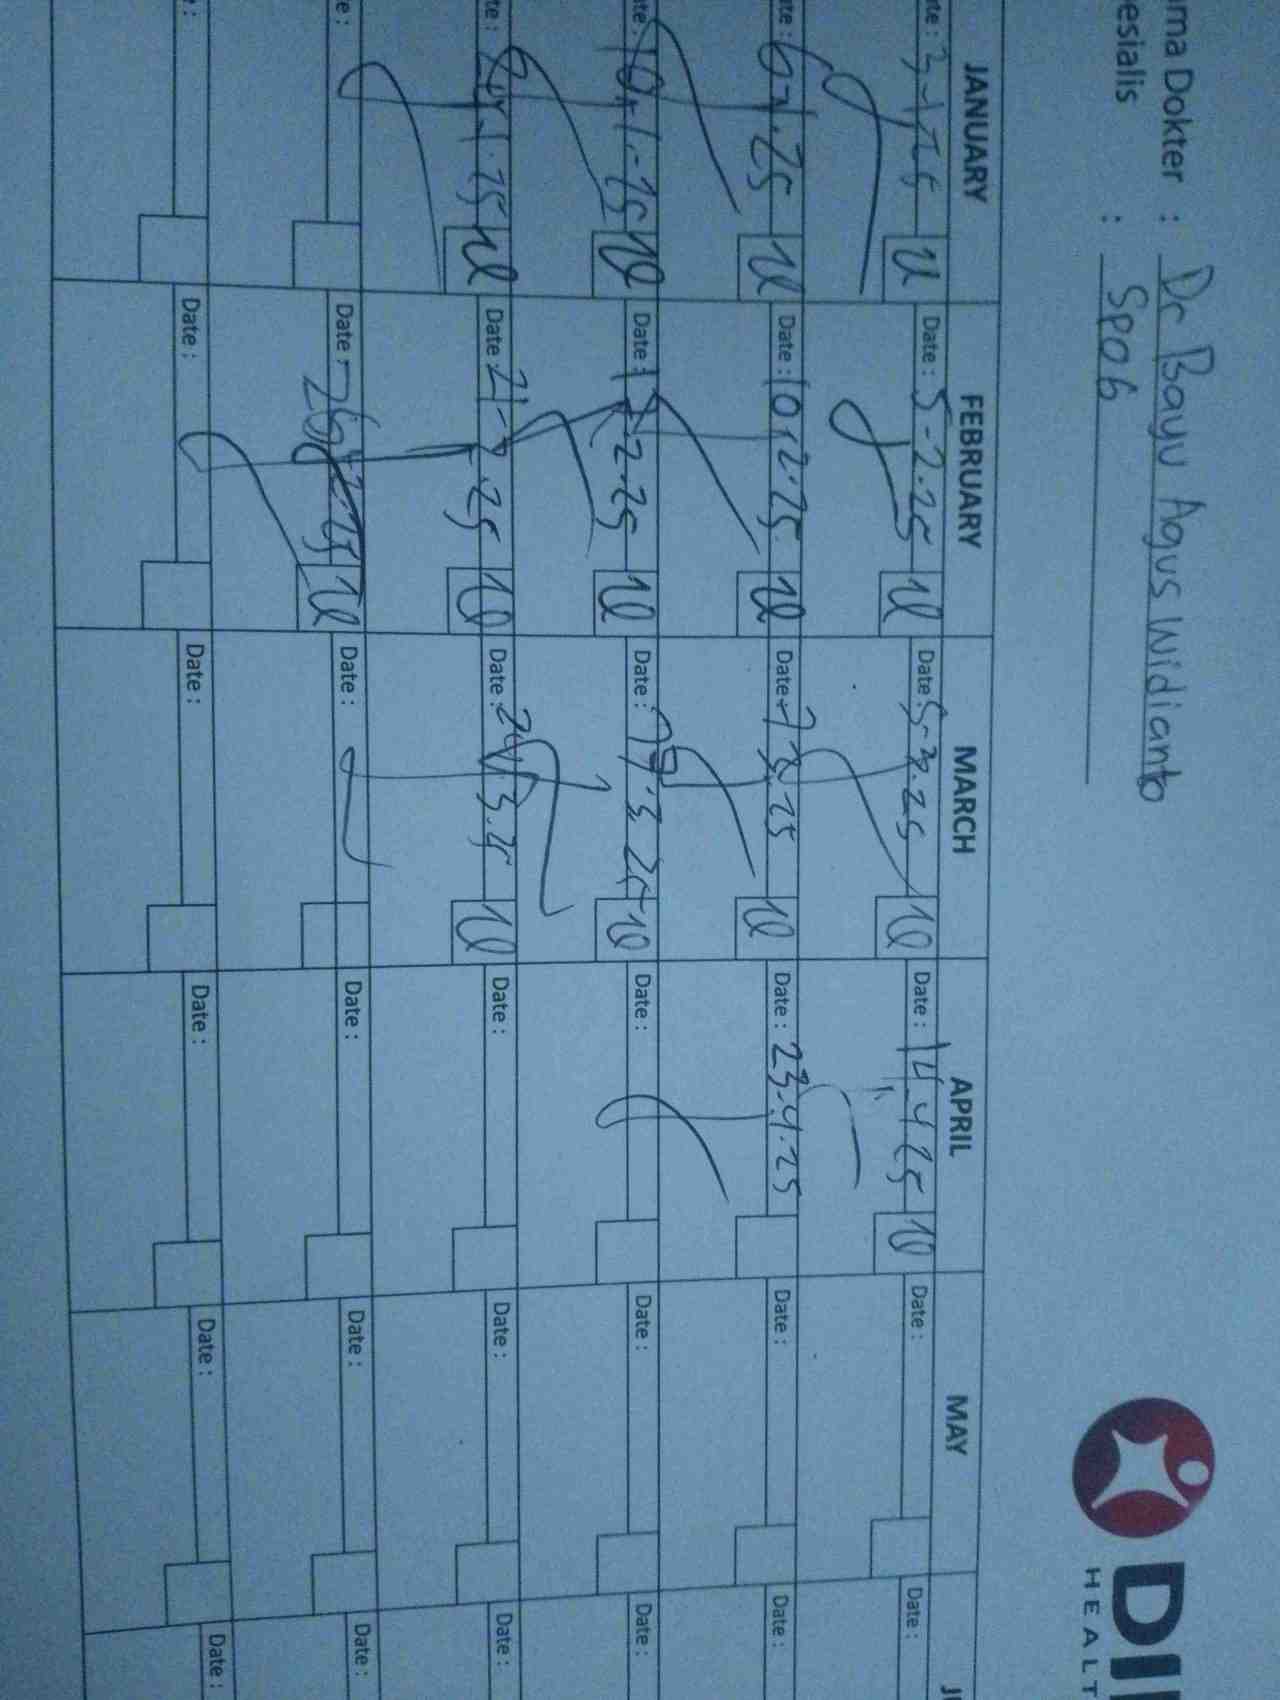 ma Dokter : Dr Bayu Agus Widianto
esialis : SpOG
DI
HEALT
JANUARY FEBRUARY MARCH APRIL MAY
te: 3-1-25 Date: 5-2-25 Date: 5-3-25 Date: 14-4-25 Date: Date:
te: 6-1-25 Date: 10-2-25 Date: 7-3-25 Date: 23-4-25 Date: Date:
te: 10-1-25 Date: 2-25 Date: 3 Date: Date: Date:
te: 1-25 Date: 21-2-25 Date: 3-25 Date: Date: Date:
e: Date: 26-2-25 Date: Date: Date: Date:
: Date: Date: Date: Date: Date: